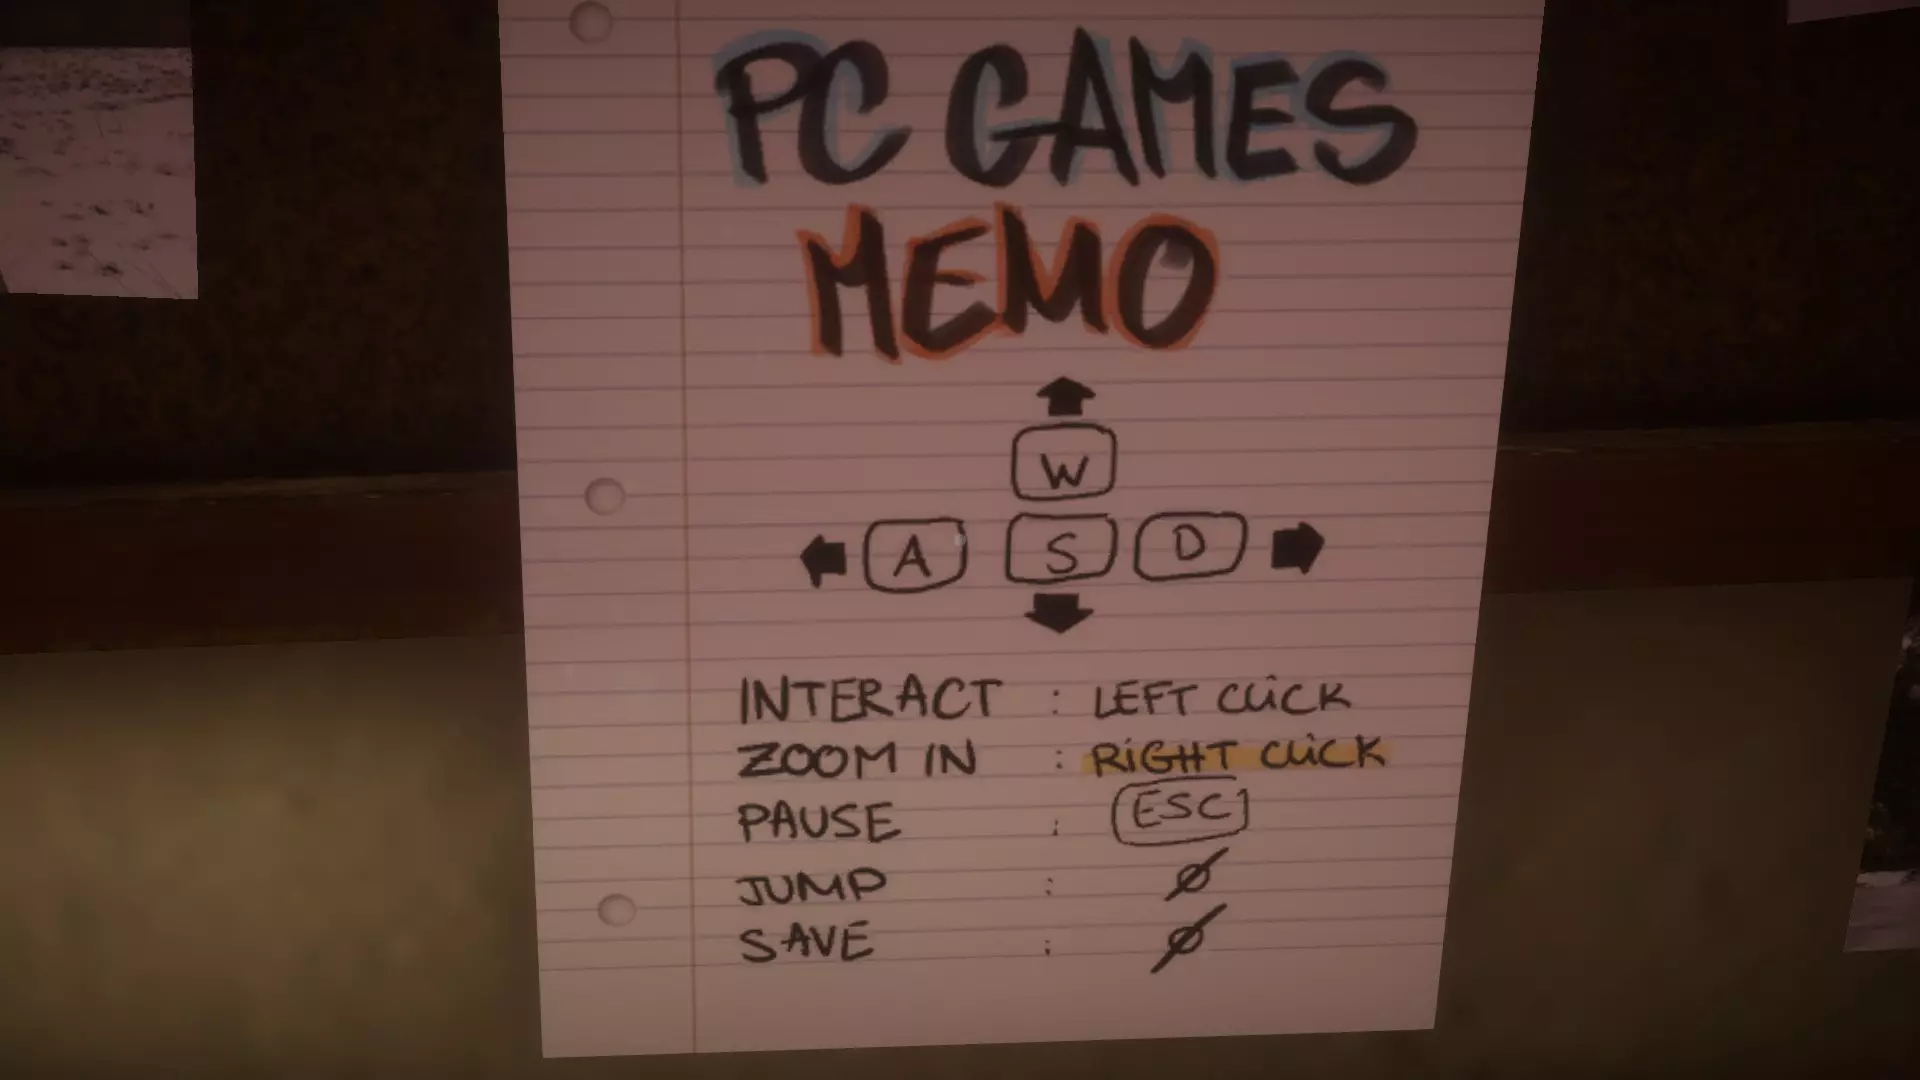 PC GAMES
MEMO
W
A S D
INTERACT : LEFT CLICK
ZOOM IN : RIGHT CLICK
PAUSE : ESC
JUMP : Ø
SAVE : Ø